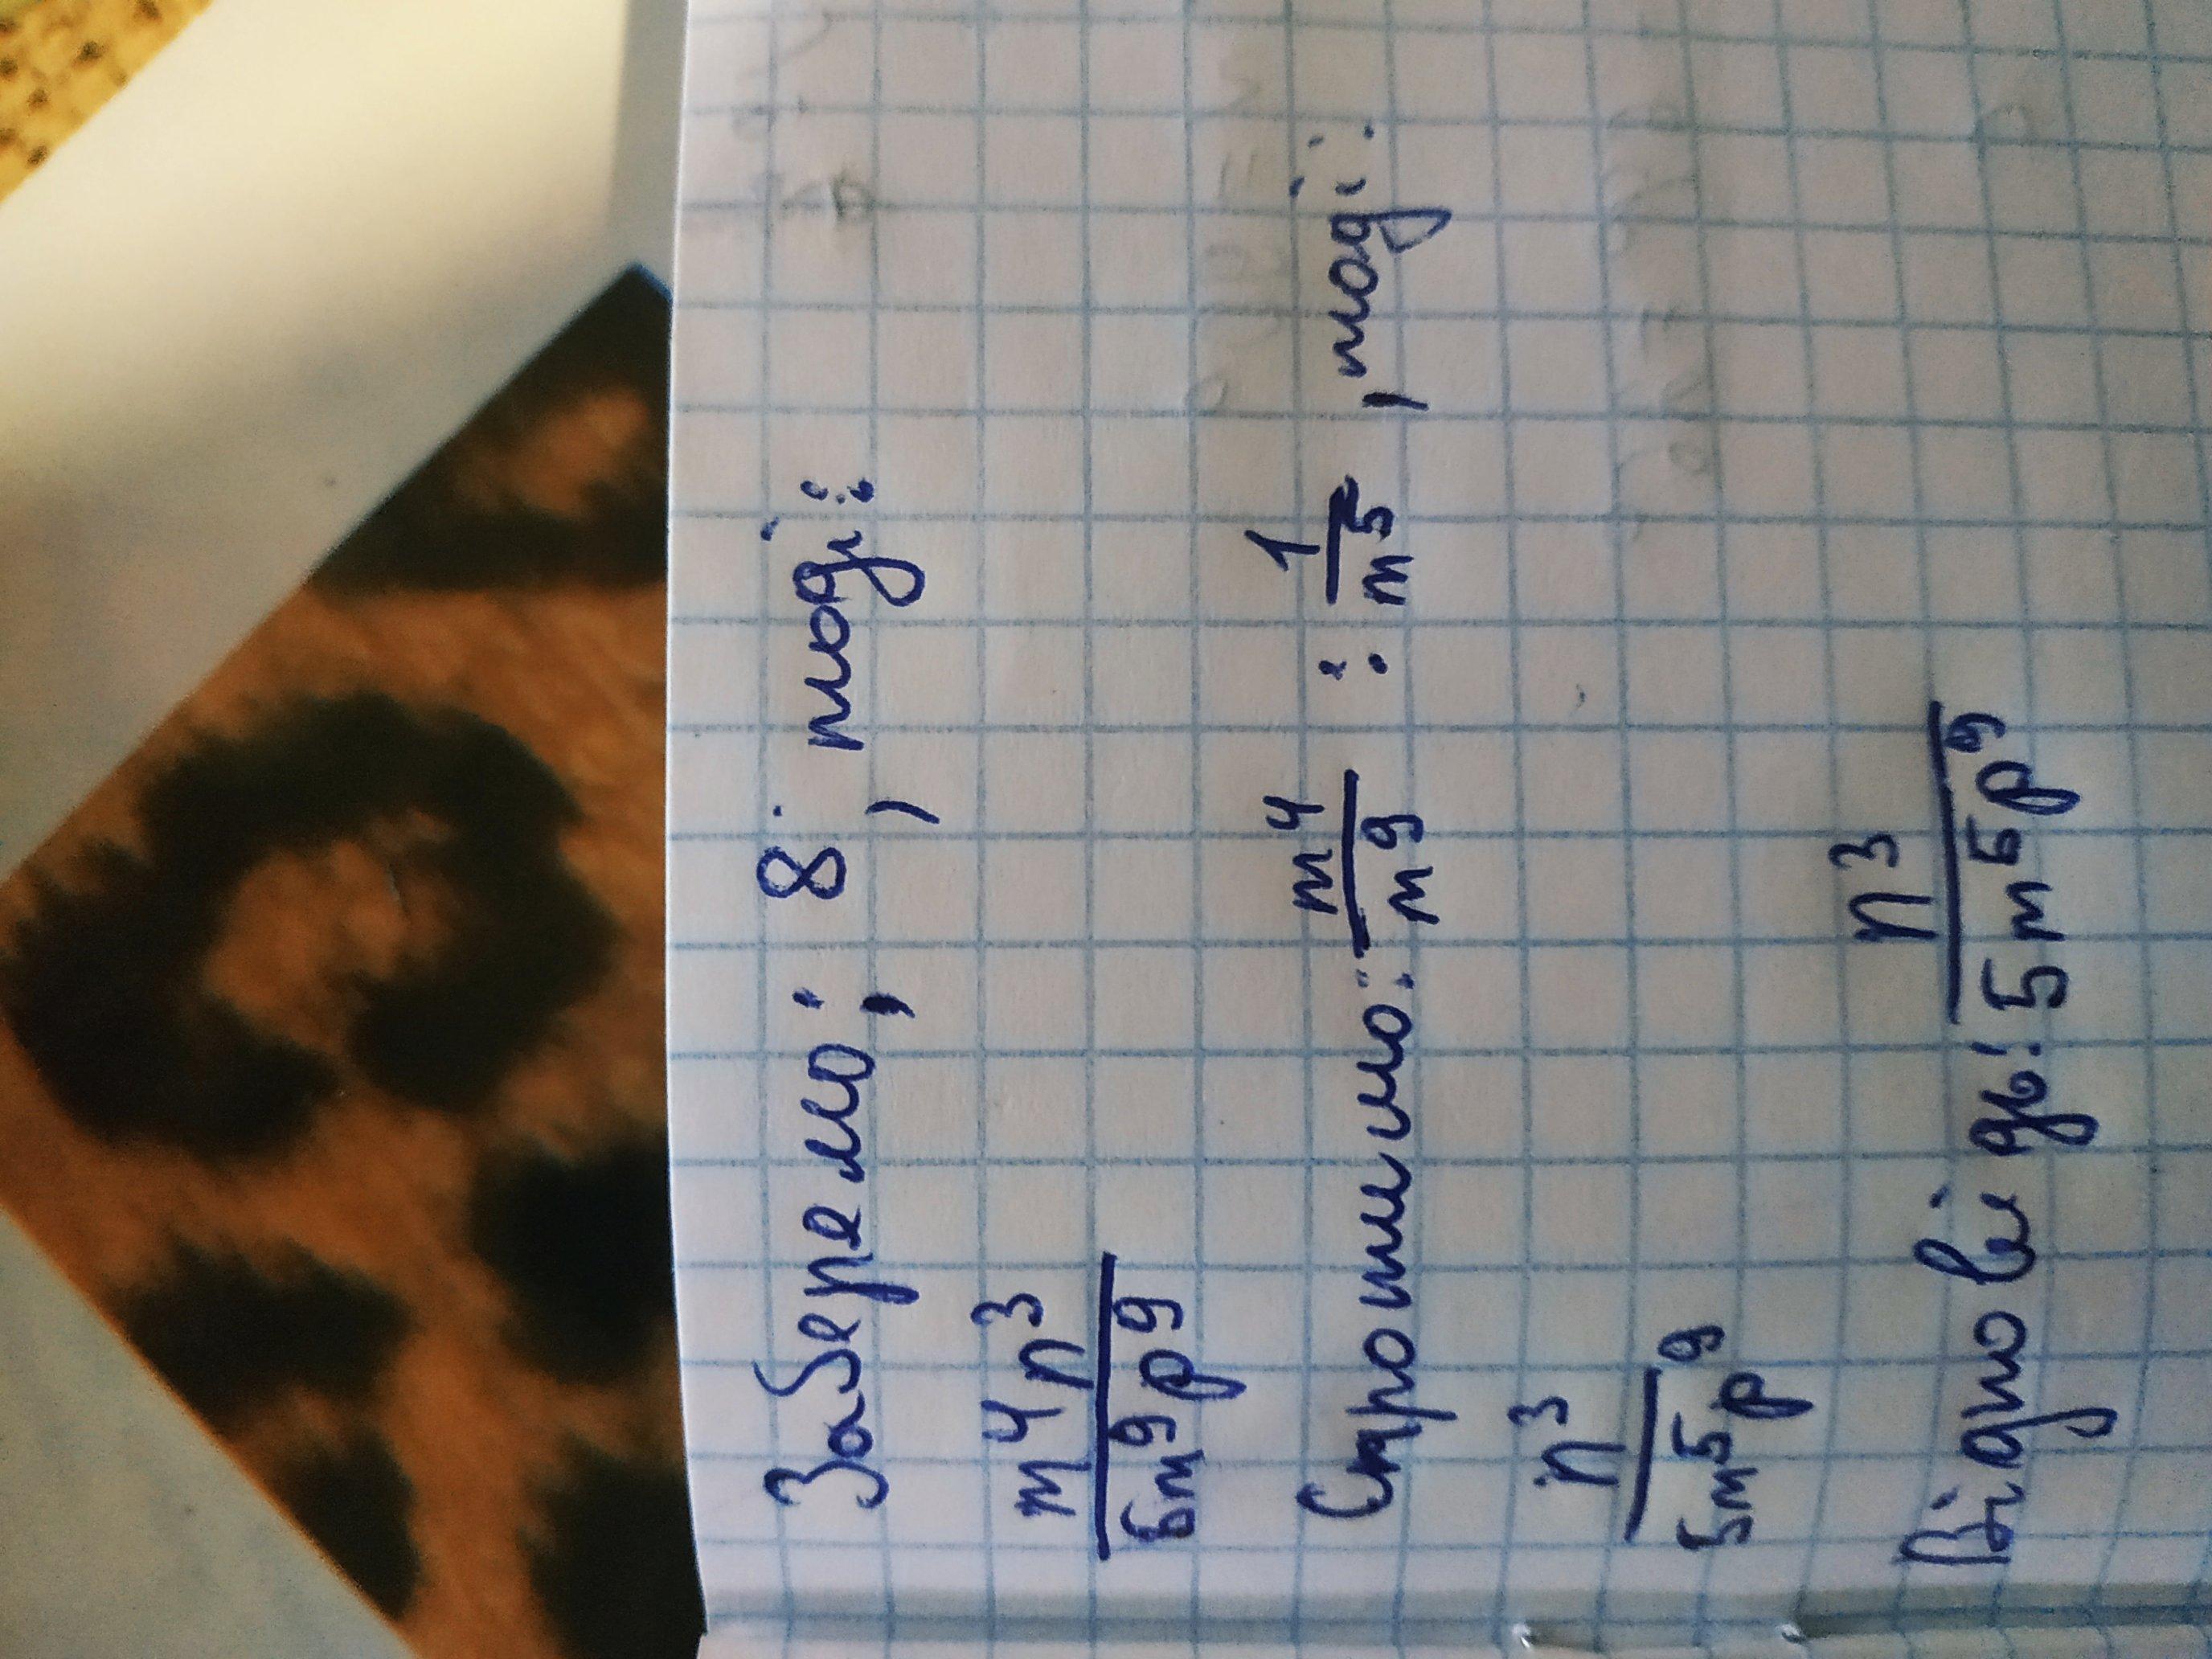 Заберемо; 8; , тоді:
m⁴n³
5m⁹p⁹
Спростимо: m⁴/m⁹ : 1/m⁵, тоді:
n³
5m⁵p⁹
Відповідь: n³/5m⁵p⁹